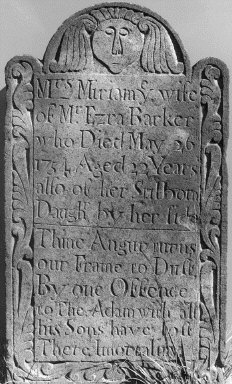 Mrs Miriam ye wife
of Mr Ezra Barker
who Died May 26
Aged 29 Years
also of her Stilborn
Daugh by her side
Thine Anguer turns
our Frame to Dust
By one Offence
to Thee Adam with all
his Sons have lost
There Imortality